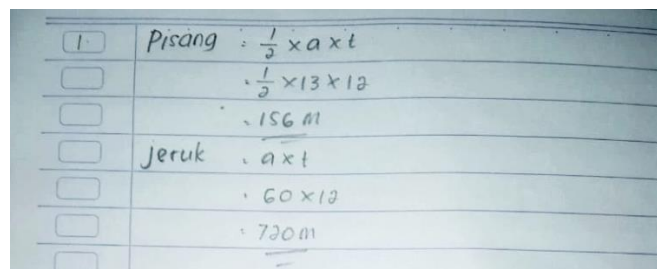 1. Pisang : 1/2 x a x t
: 1/2 x 13 x 12
: 156 m
jeruk : a x t
: 60 x 12
: 720 m